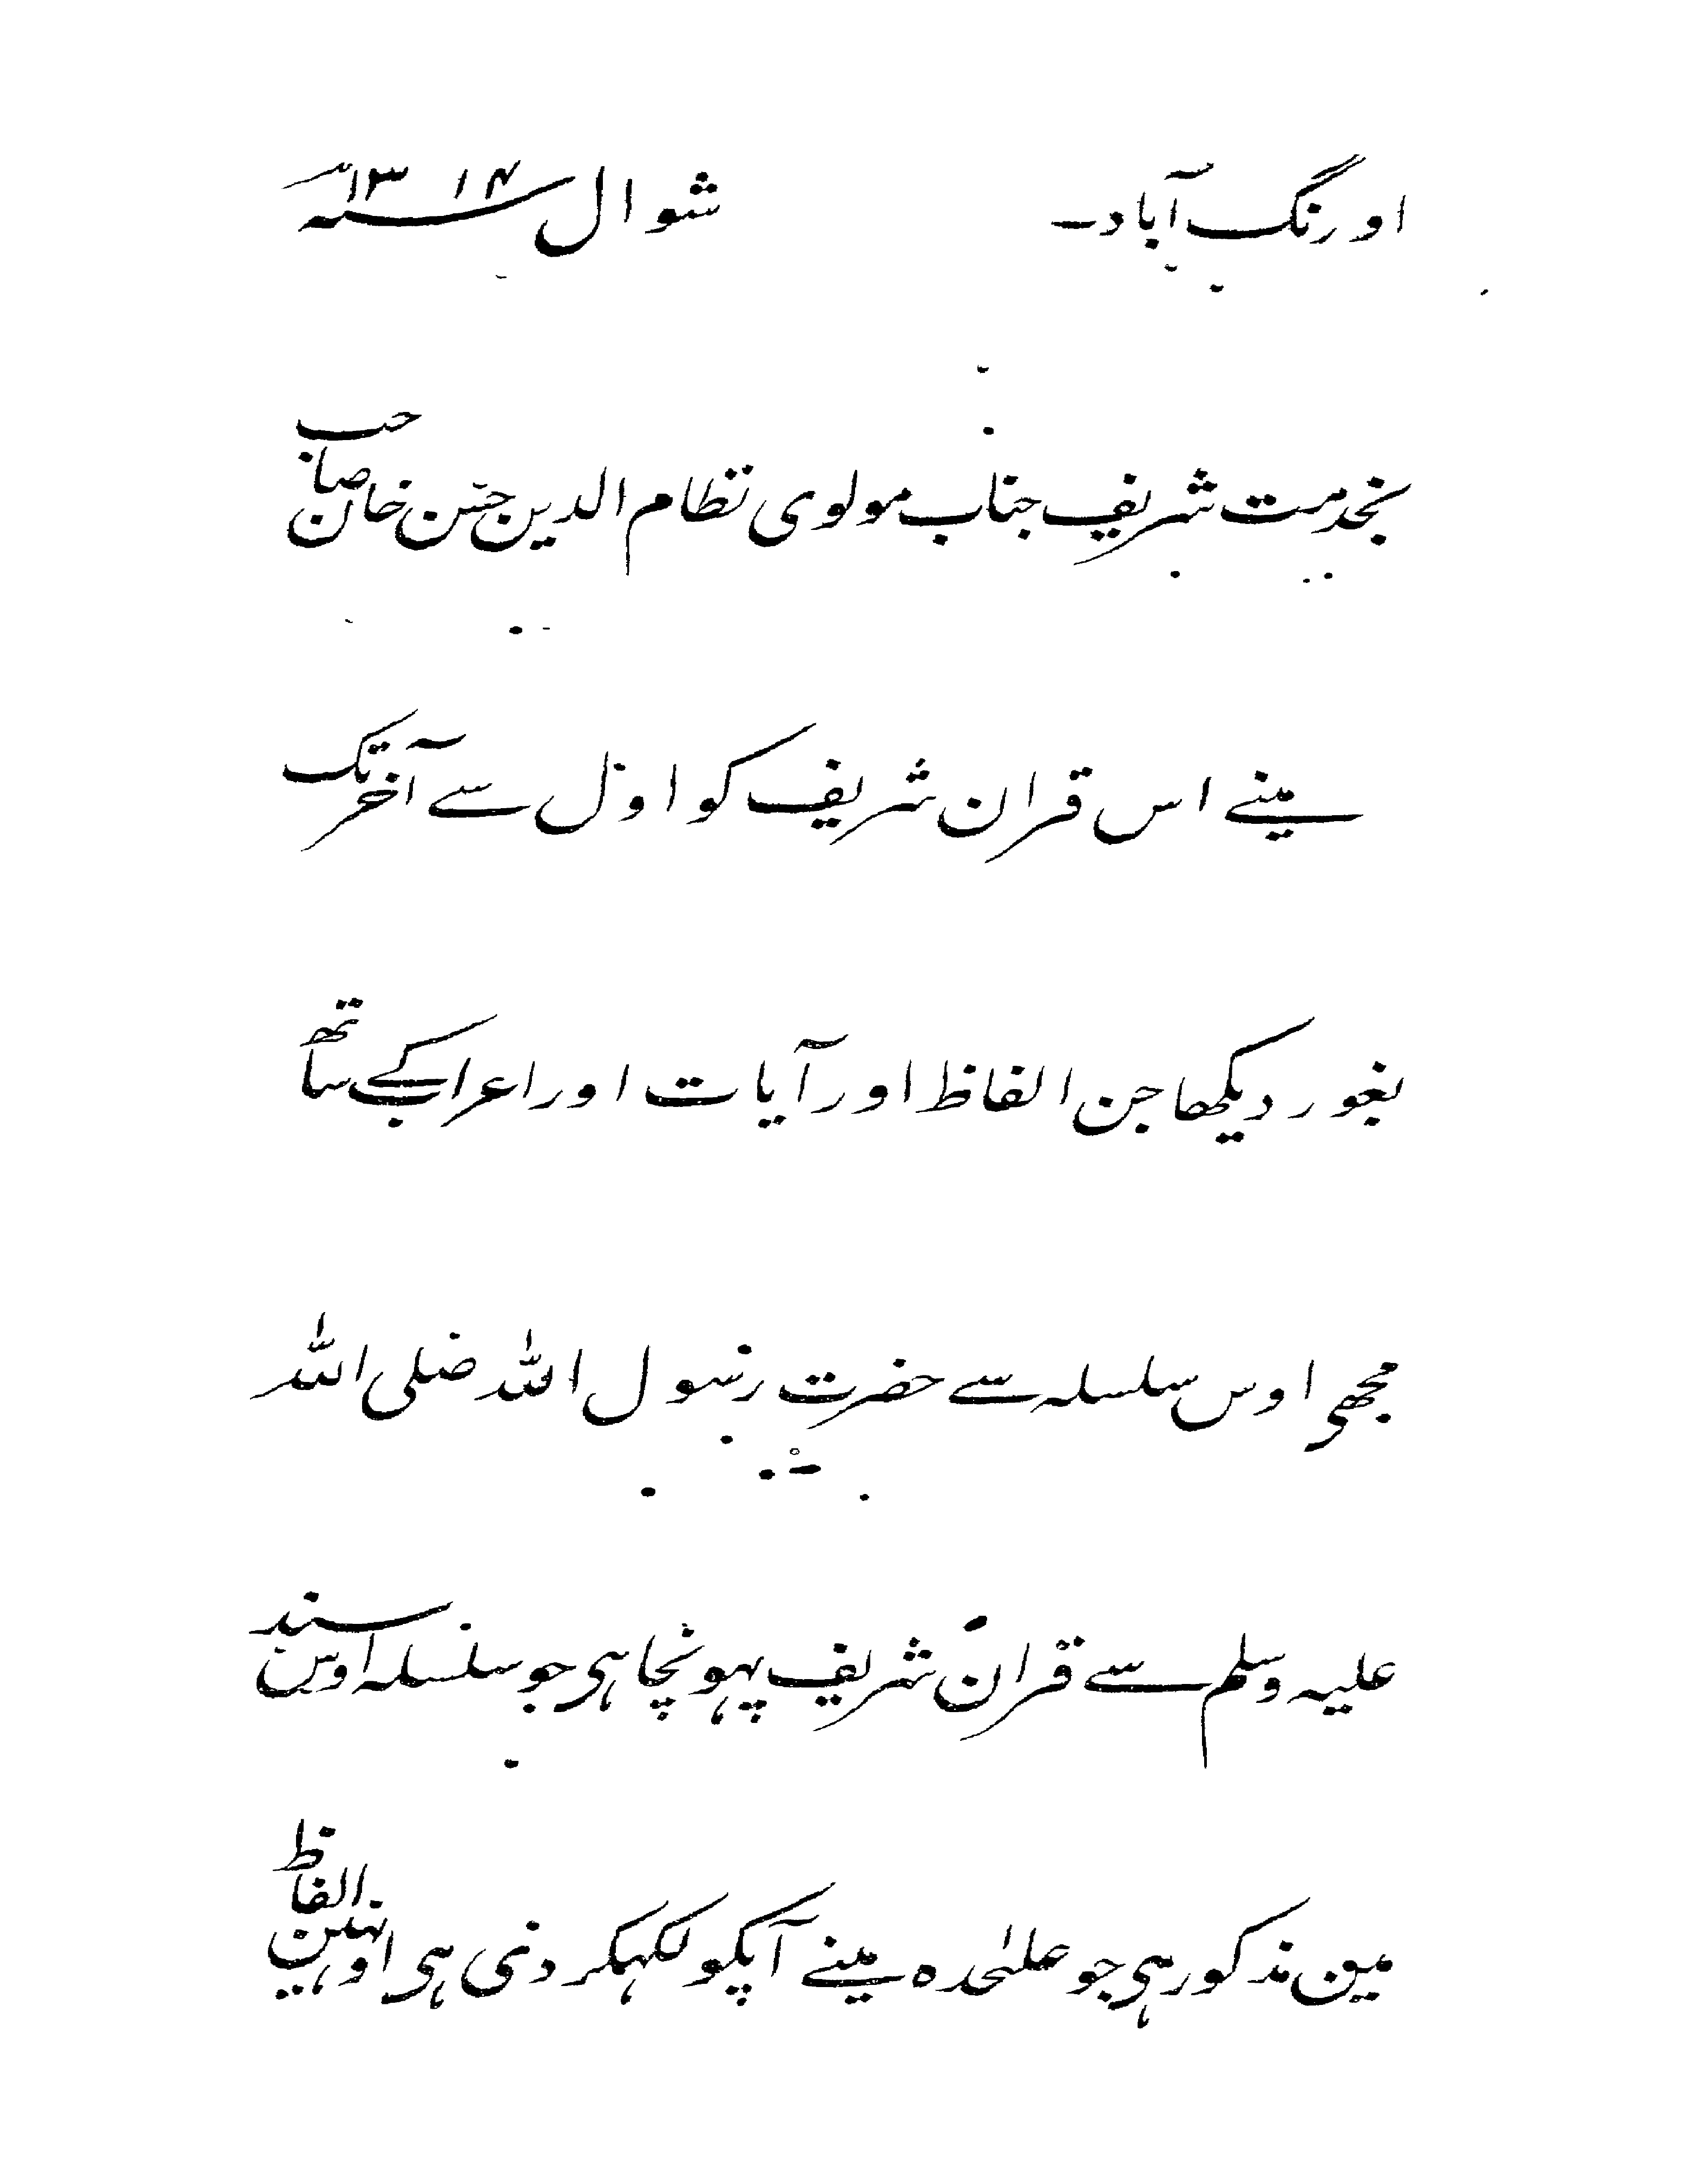 اورنگ آباد۔ شوال سنہ ۱۳۱۴
بخدمت شریف جناب مولوی نظام الدین حسن خان صاحب
مینے اس قران شریف کو اول سے آخر تک
بغور دیکھا جن الفاظ اور آیات اور اعراب کے ساتھ
مجھی اوس سلسلہ سے حضرت رسول اللہ صلی اللہ
علیہ وسلم سے قران شریف پہونچا ہی جو سلسلہ اوس سند
مین مذکور ہی جو علیٰحدہ مینے آپکو لکہکر دی ہی اونہین الفاظ